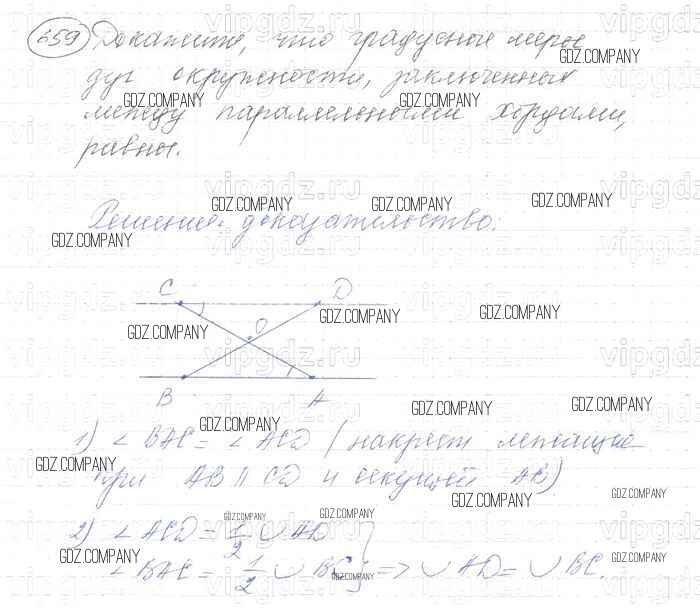 659 Докажите, что градусные меры
дуг окружности, заключенных
между параллельными хордами,
равны.
Решение: доказательство:
C D
O
B A
1) ∠ BAC = ∠ ACD (накрест лежащие
при AB || CD и секущей AB)
2) ∠ ACD = 1/2 ∪ AD
∠ BAC = 1/2 ∪ BC } => ∪ AD = ∪ BC.
GDZ.COMPANY
vipgdz.ru